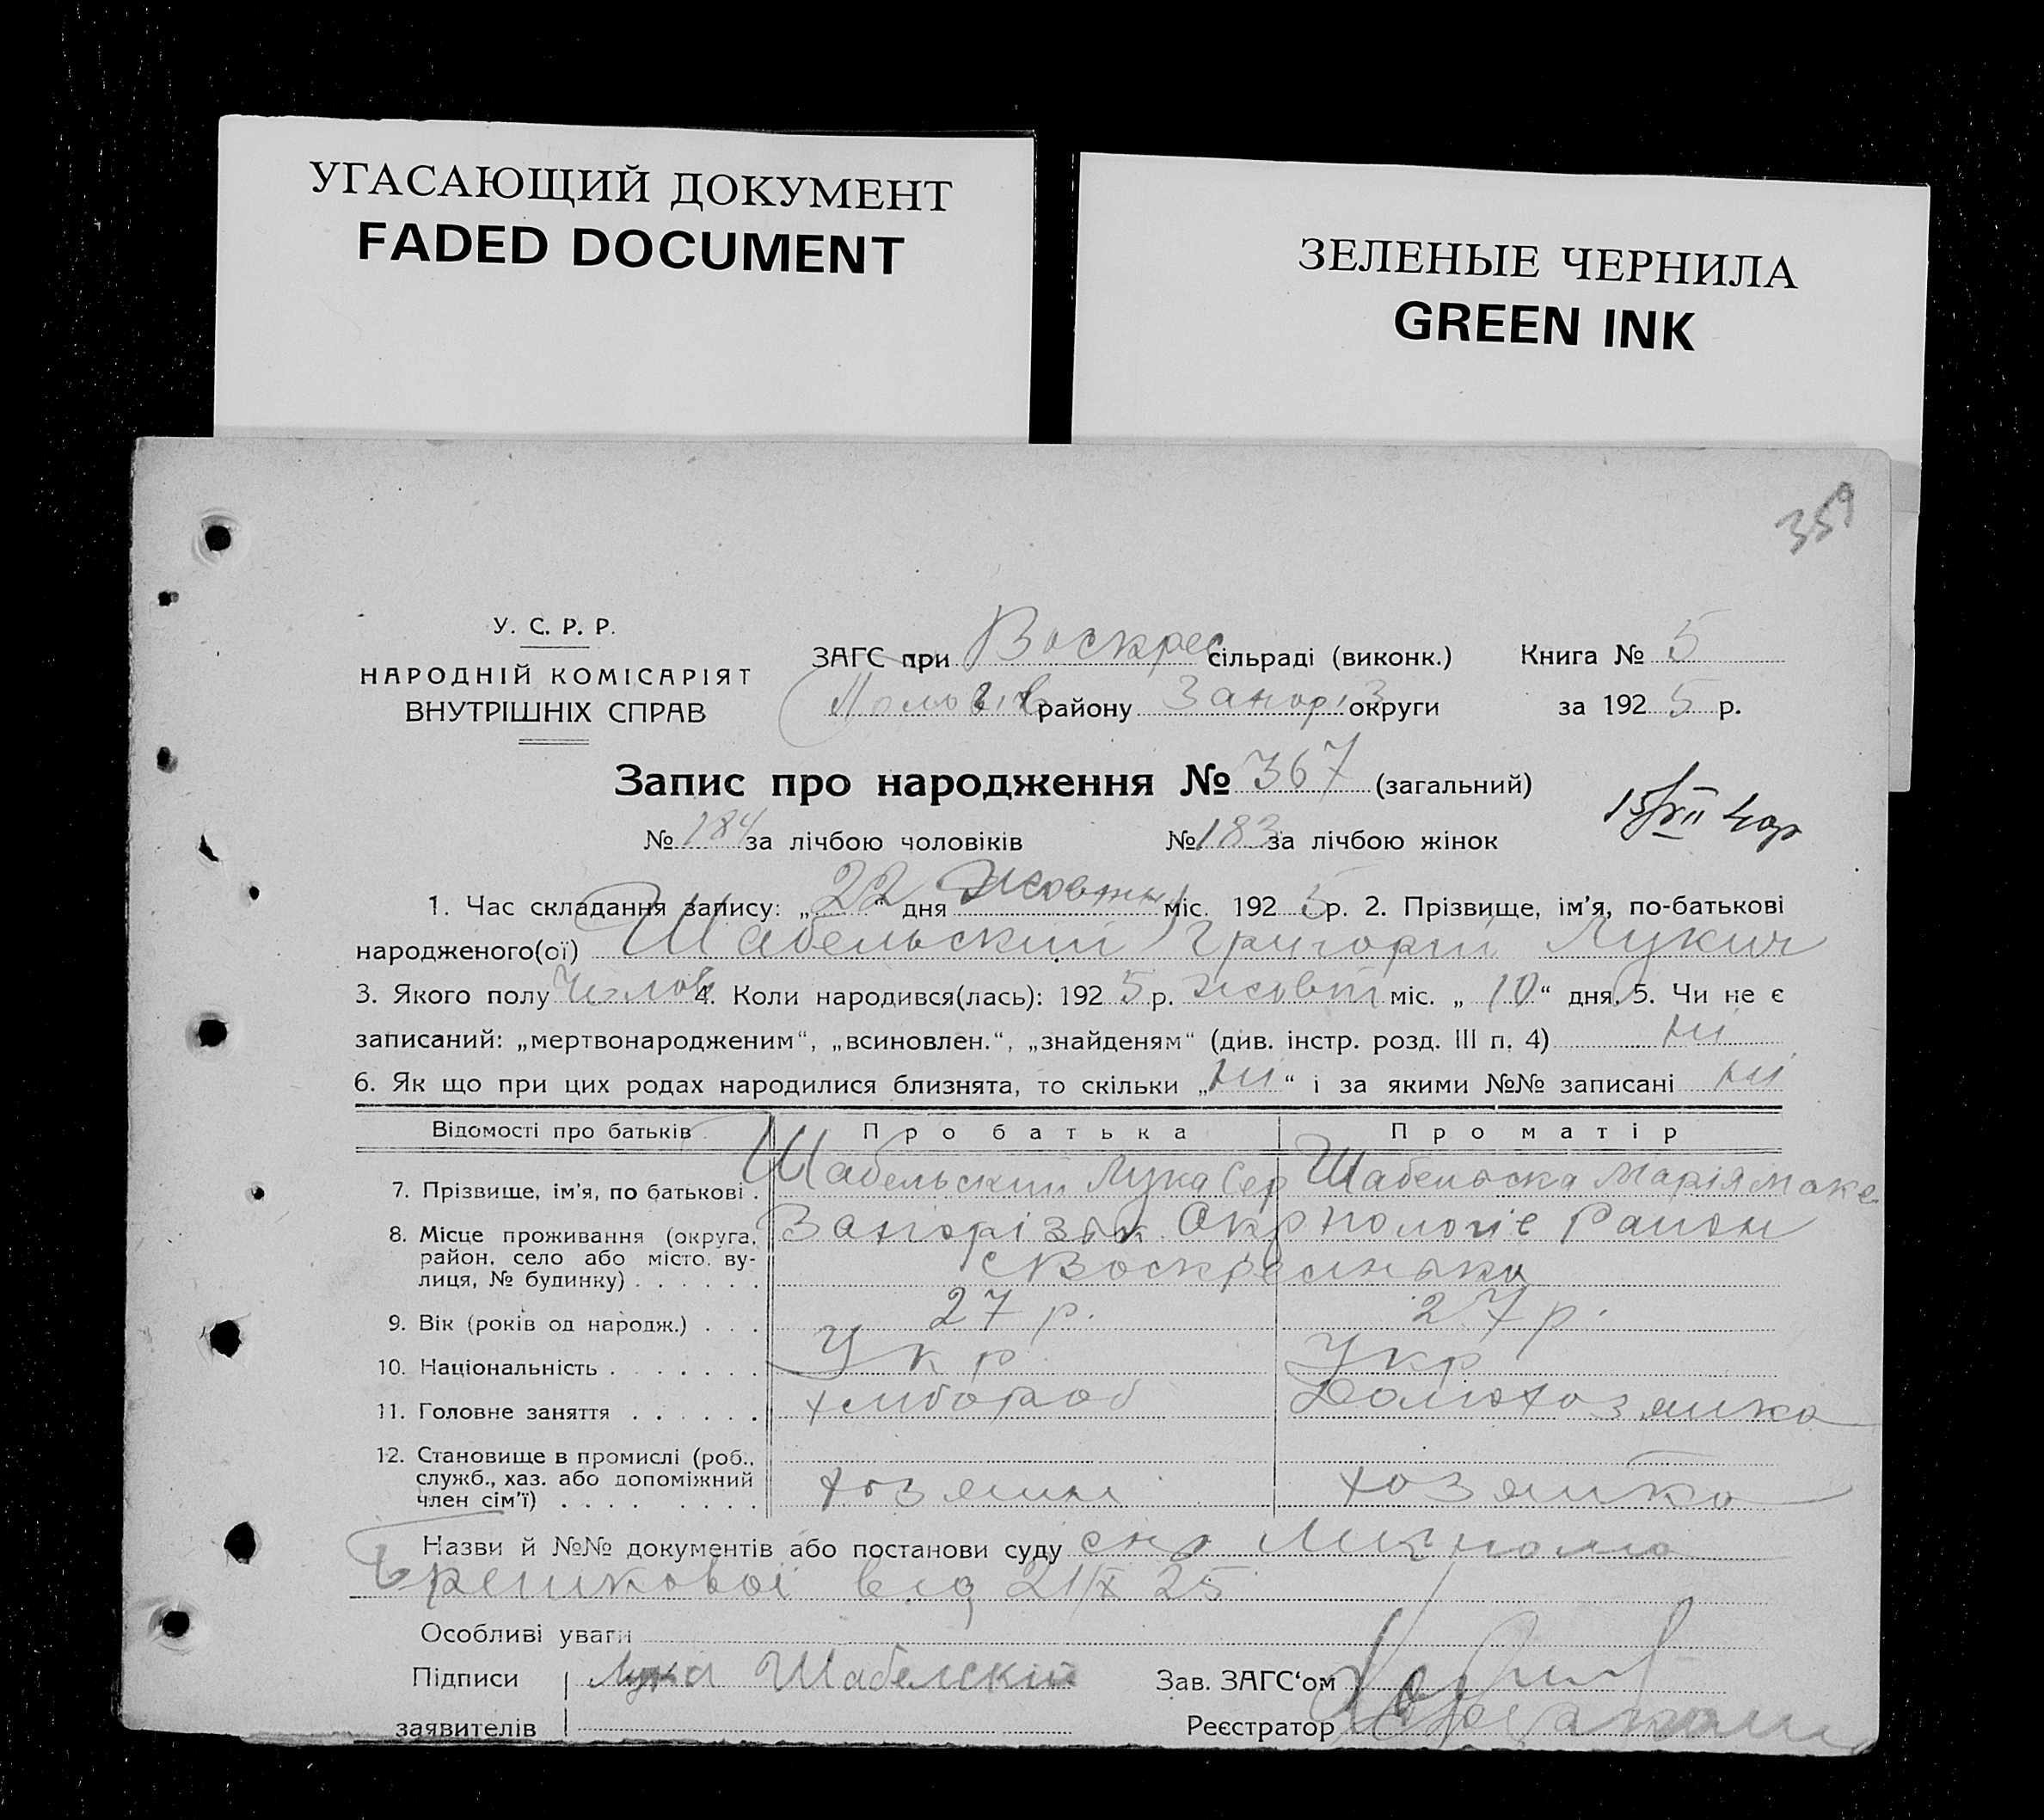 УГАСАЮЩИЙ ДОКУМЕНТ
FADED DOCUMENT
ЗЕЛЕНЫЕ ЧЕРНИЛА
GREEN INK
359
У. С. Р. Р.
НАРОДНІЙ КОМІСАРІЯТ
ВНУТРІШНІХ СПРАВ
ЗАГС при Воскрес сільраді (виконк.) Книга № 5
району Запоріз округи за 1925 р.
Запис про народження № 367 (загальний)
№ 184 за лічбою чоловіків № 183 за лічбою жінок
1. Час складання запису: „22“ дня Жовтн міс. 1925 р. 2. Прізвище, ім'я, по-батькові
народженого(ої) Шабельський Григорій Лукич
3. Якого полу Чолов 4. Коли народився(лась): 1925 р. жовт міс. „10“ дня. 5. Чи не є
записаний: „мертвонародженим“, „всиновлен.“, „знайденям“ (див. інстр. розд. III п. 4) ні
6. Як що при цих родах народилися близнята, то скільки „ні“ і за якими №№ записані ні
Відомості про батьків Про батька Про матір
7. Прізвище, ім'я, по батькові . Шабельский Лука Сер Шабельска Марія Маке
8. Місце проживання (округа, район, село або місто, вулиця, № будинку) . . . . . . Запорізьк Окр Пологів Район
с Воскресенька
9. Вік (років од народж.) . . . 27 р. 27 р.
10. Національність . . . . . . . Укр Укр
11. Головне заняття . . . . . . хлибороб Домохозяйка
12. Становище в промислі (роб., служб., хаз. або допоміжний член сім'ї) . . . . . . . . хозяин хозяйка
Назви й №№ документів або постанови суду
від 21/X 25
Особливі уваги
Підписи Лука Шабелскій Зав. ЗАГС'ом
заявителів Реєстратор